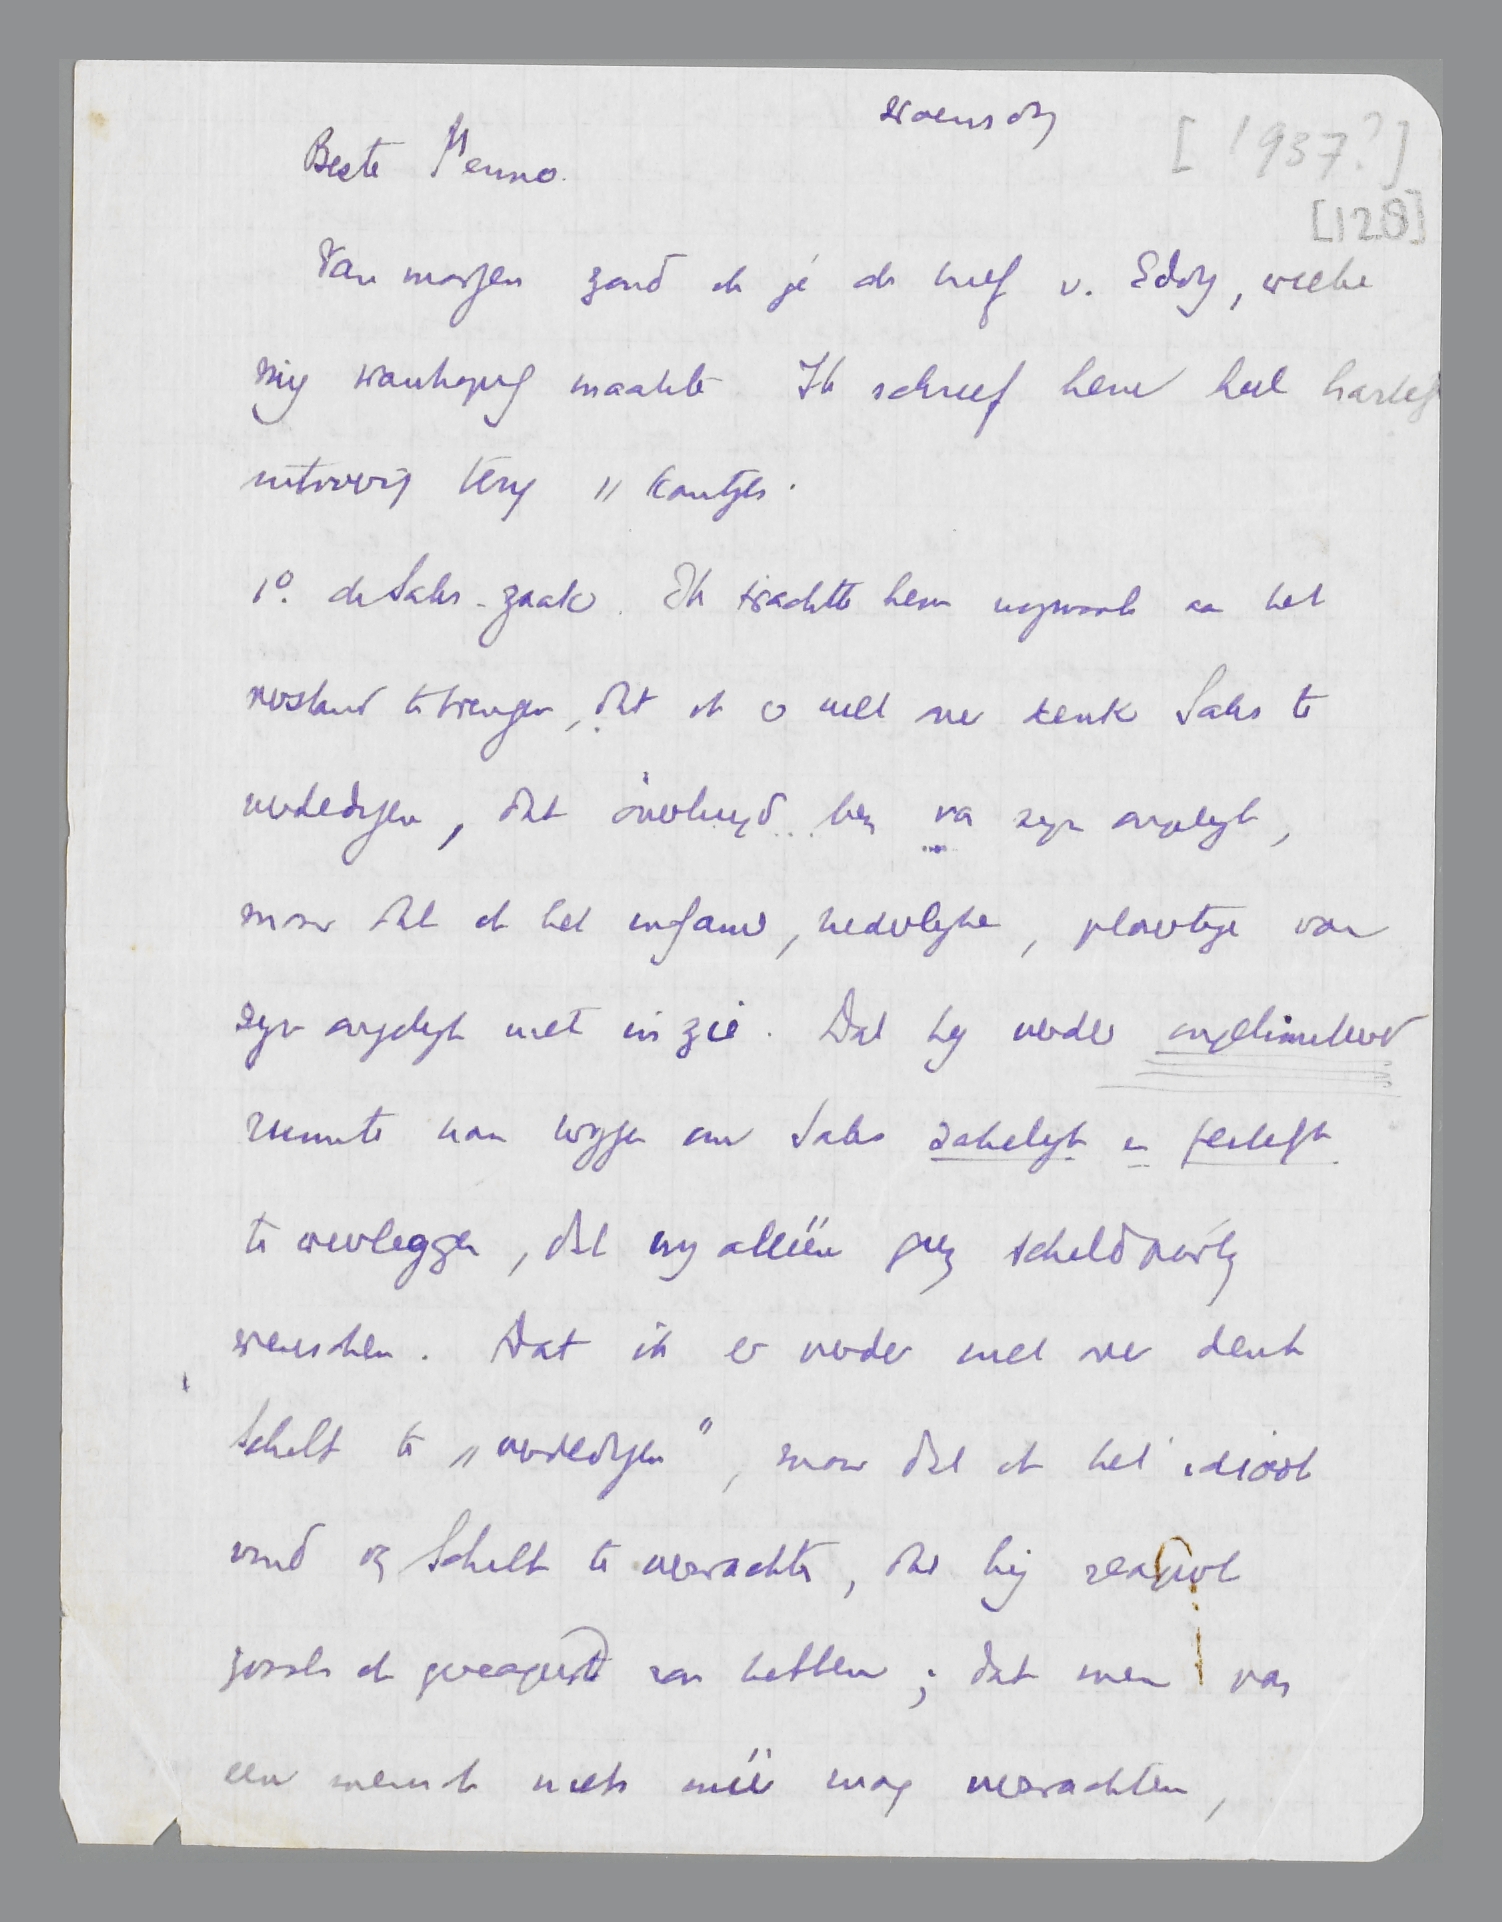 woensdg
[1937?]
Beste Menno.
[128]
Van morgen zond ik je de brief v. Eddy, welke
mij wanhopig maakte. Ik schreef hem heel hartelijk
uitvoerig terug 11 kantjes.
1º. de Saks-zaak. Ik trachtte hem nogmaals aan het
verstand te brengen, dat ik er niet over denk Saks te
verdedigen, dat overtuigd ben van zijn ongelijk,
maar dat ik het infame, nederlijke, ploertige van
zijn ongelijk niet in zie. Dat hij verder ongelimiteerd
ruimte kan krijgen om Saks zakelijk en geestelijk
te weerleggen, dat wij alléén geen scheldpartij
wenschen. Dat ik er verder niet over denk
Schelt te „verdedigen", maar dat ik het idioot
vind v Schelt te verwachten, dat hij reageert
zooals ik gereageerd zou hebben; dat men van
een mensch niets méér mag verwachten,